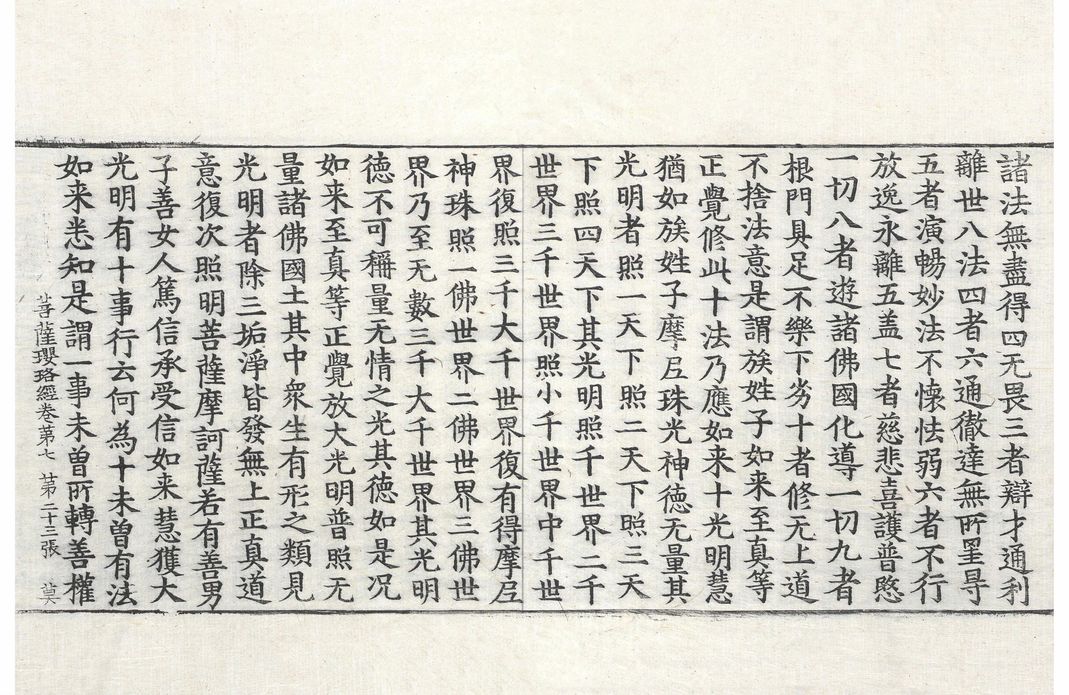 諸法無盡得四无畏三者辯才通利
離世八法四者六通徹達無所罣㝵
五者演暢妙法不懷怯弱六者不行
放逸永離五盖七者慈悲喜護普愍
一切八者遊諸佛國化導一切九者
根門具足不樂下劣十者修无上道
不捨法意是謂族姓子如来至真等
正覺修此十法乃應如来十光明慧
猶如族姓子摩尼珠光神德无量其
光明者照一天下照二天下照三天
下照四天下其光明照千世界二千
世界三千世界照小千世界中千世
界復照三千大千世界復有得摩尼
神珠照一佛世界二佛世界三佛世
界乃至无數三千大千世界其光明
德不可稱量无情之光其德如是况
如来至真等正覺放大光明普照无
量諸佛國土其中衆生有形之類見
光明者除三垢淨皆發無上正真道
意復次照明菩薩摩訶薩若有善男
子善女人篤信承受信如来慧獲大
光明有十事行云何為十未曾有法
如来悉知是謂一事未曾所轉善權
菩薩瓔珞經卷第七 第二十三張 莫